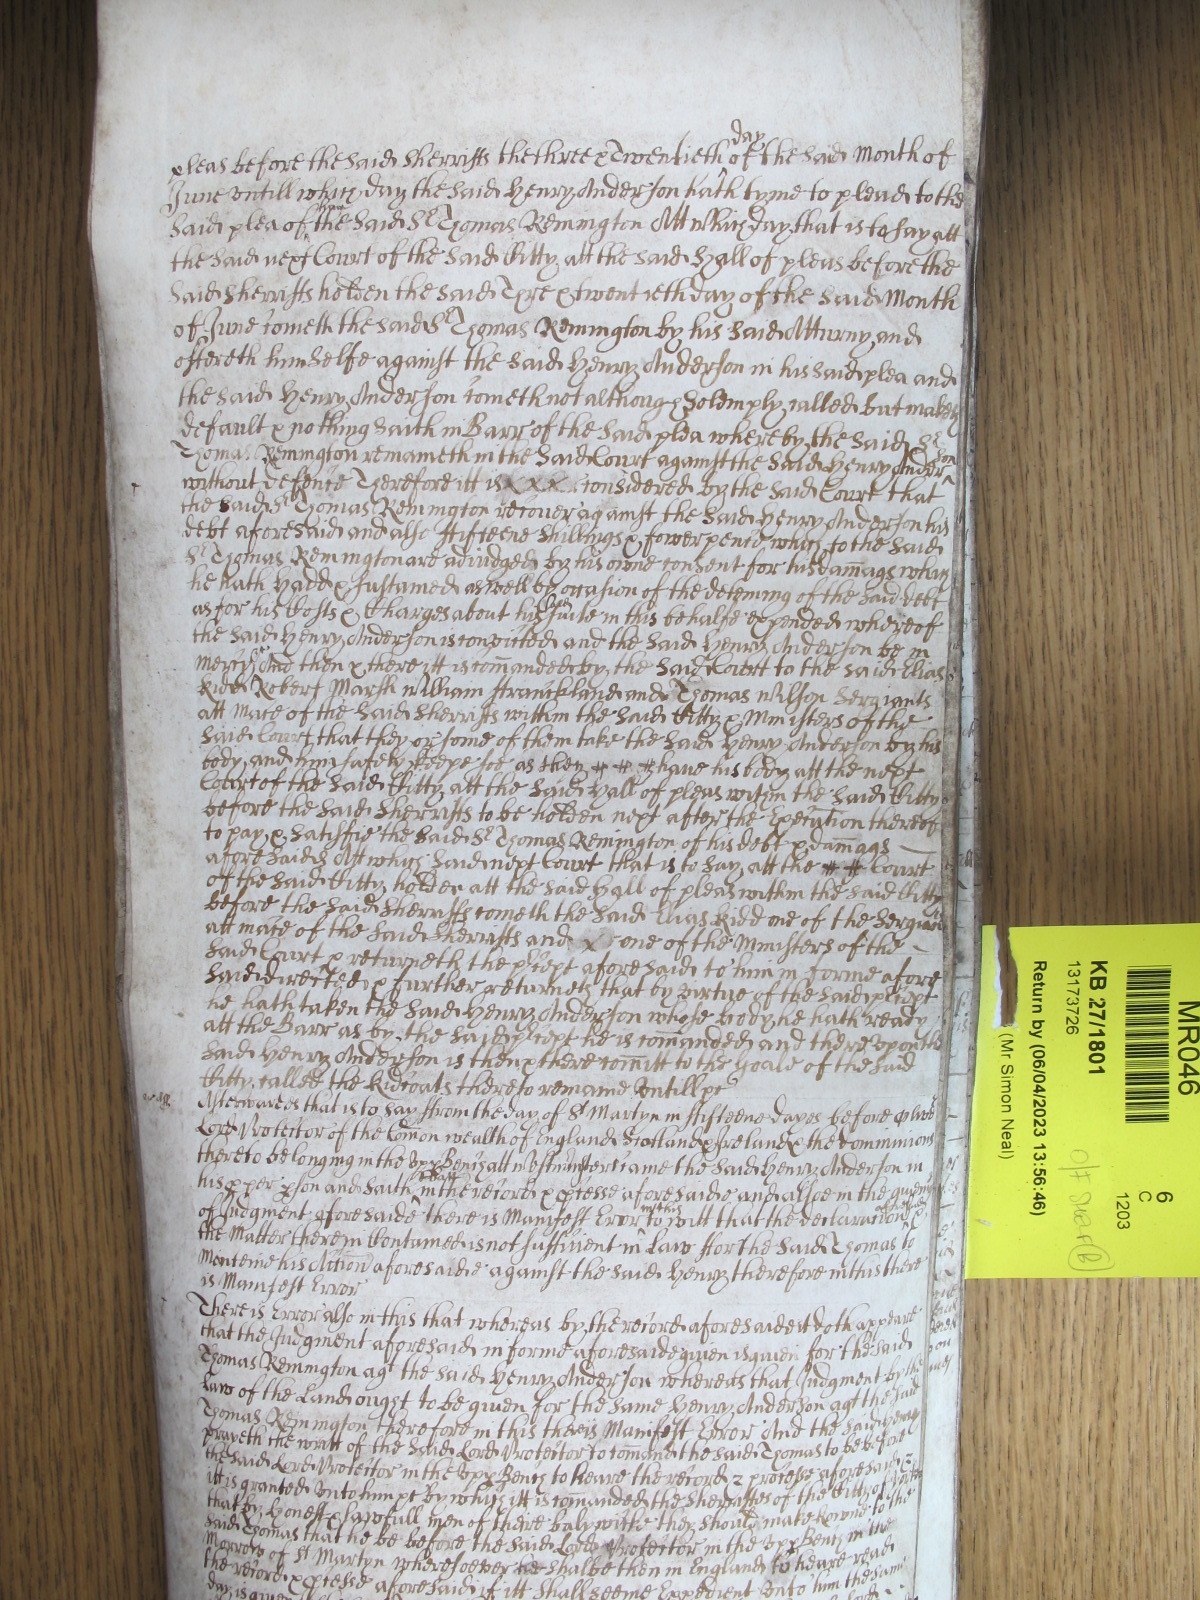 pleas before the said Sherriffs the three & Twentieth day of the said Month of
June untill which day the said Henry Anderson hath tyme to plead to the
said plea of him the said Sr Thomas Remington Att which day that is to say att
the said next Court of the said Citty att the said Hall of pleas before the
said Sherriffs holden the said Three & twentieth day of the said Month
of June cometh the said Sr Thomas Remington by his said Atturny and
offereth himselfe against the said Henry Anderson in his said plea and
the said Henry Anderson cometh not although solemply called but maketh
default & nothing saith in Barr of the said plea whereby the said Sr
Thomas Remington remaineth in the said Court against the said Henry Anderson
without defence Therefore itt is considered by the said Court that
the said Sr Thomas Remington recover against the said Henry Anderson his
debt aforesaid and also ffifteene shillings & fower pence which to the said
Sr Thomas Remington are adiudged by his owne consent for his damags which
he hath hadd & sustained aswell by occasion of the deteining of the said debt
as for his Costs & Charges about his suite in this behalfe expended whereof
the said Henry Anderson is convicted and the said Henry Anderson be in
mercy &c And then & there itt is comanded by the said Court to the said Elias
Kidd Robert Marsh William ffranckland and Thomas Wilson Sergiants
att Mace of the said Sherriffs within the said Citty & Ministers of the
said Court that they or some of them take the said Henry Anderson by his
body and him safely keepe soe as they have his body att the next
Court of the said Citty att the said Hall of pleas within the said Citty
before the said Sherriffs to be holden next after the Execution thereof
to pay & satisfie the said Sr Thomas Remington of his debt & damags
aforesaid Att which said next Court that is to say att the Court
of the said Citty holden att the said Hall of pleas within the said Citty
before the said Sherriffs cometh the said Elias Kidd one of the Sergiants
att mace of the said Sherriffs and one of the Ministers of the
said Court & returneth the precept aforesaid to him in forme afore
said directed & further returneth that by virtue of the said precept
he hath taken the said Henry Anderson whose body he hath ready
att the Barr as by the said precept he is comanded and there upon the
said Henry Anderson is then & there comitt to the Goale of the said
Citty called the Kidcoats there to remaine Untill &c
Afterwards that is to say ffrom the day of St Martyn in ffifteene dayes before
Lord Protector of the Comon wealth of England Scotland & Ireland & the dominions
thereto belonging in the Upp Bench att Westminster came the said Henry Anderson in
his pper pson and saith that in the record & pcesse aforesaid and alsoe in the giveing
of Judgment aforesaid there is Manifest Error in this to witt that the declaracon aforesaid &
the Matter therein Contained is not sufficient in Law ffor the said Thomas to
Manteine his Action aforesaid against the said Henry therefore in this there
is Manifest Error
There is Error also in this that whereas by the record aforesaid it doth appeare
that the Judgment aforesaid in forme aforesaid given is given for the said
Thomas Remington agt the said Henry Anderson whereas that Judgment by the
Law of the Land ought to be given for the same Henry Anderson agt the said
Thomas Remington therefore in this there is Manifest Error And the said Henry
prayeth the writt of the said Lord Protector to comand the said Thomas to be before
the said Lord Protector in the Upp Bench to heare the record & processe aforesaid
itt is granted Unto him &c by which itt is comanded the Sherriffes of the Citty of
that by honest & lawfull men of theire balywicke they should make knowne to the
said Thomas that he be before the said Lord Protector in the Upp Bench in the
Morrow of St Martyn wheresoever he shalbe then in England to heare read
the record & pcesse aforesaid if itt shall seeme Expedient Unto him the same
day is given
MR046
6
C
1203
KB 27/1801
13173726
Return by (06/04/2023 13:56:46)
(Mr Simon Neal)